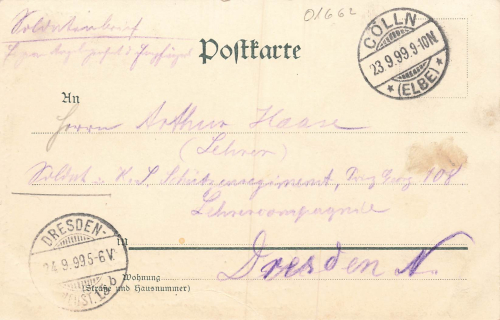 01662
Soldatenbrief
Postkarte
CÖLLN
23.9.99.9-10N.
* (ELBE) *
An
Herrn Arthur Haase
(Lehrer)
Soldat: K. S. Schützenregiment, 108
Lehrercompagnie
DRESDEN-
24.9.99 5-6V.
NEUST. 1 a b
In Dresden N.
Wohnung
(Straße und Hausnummer)